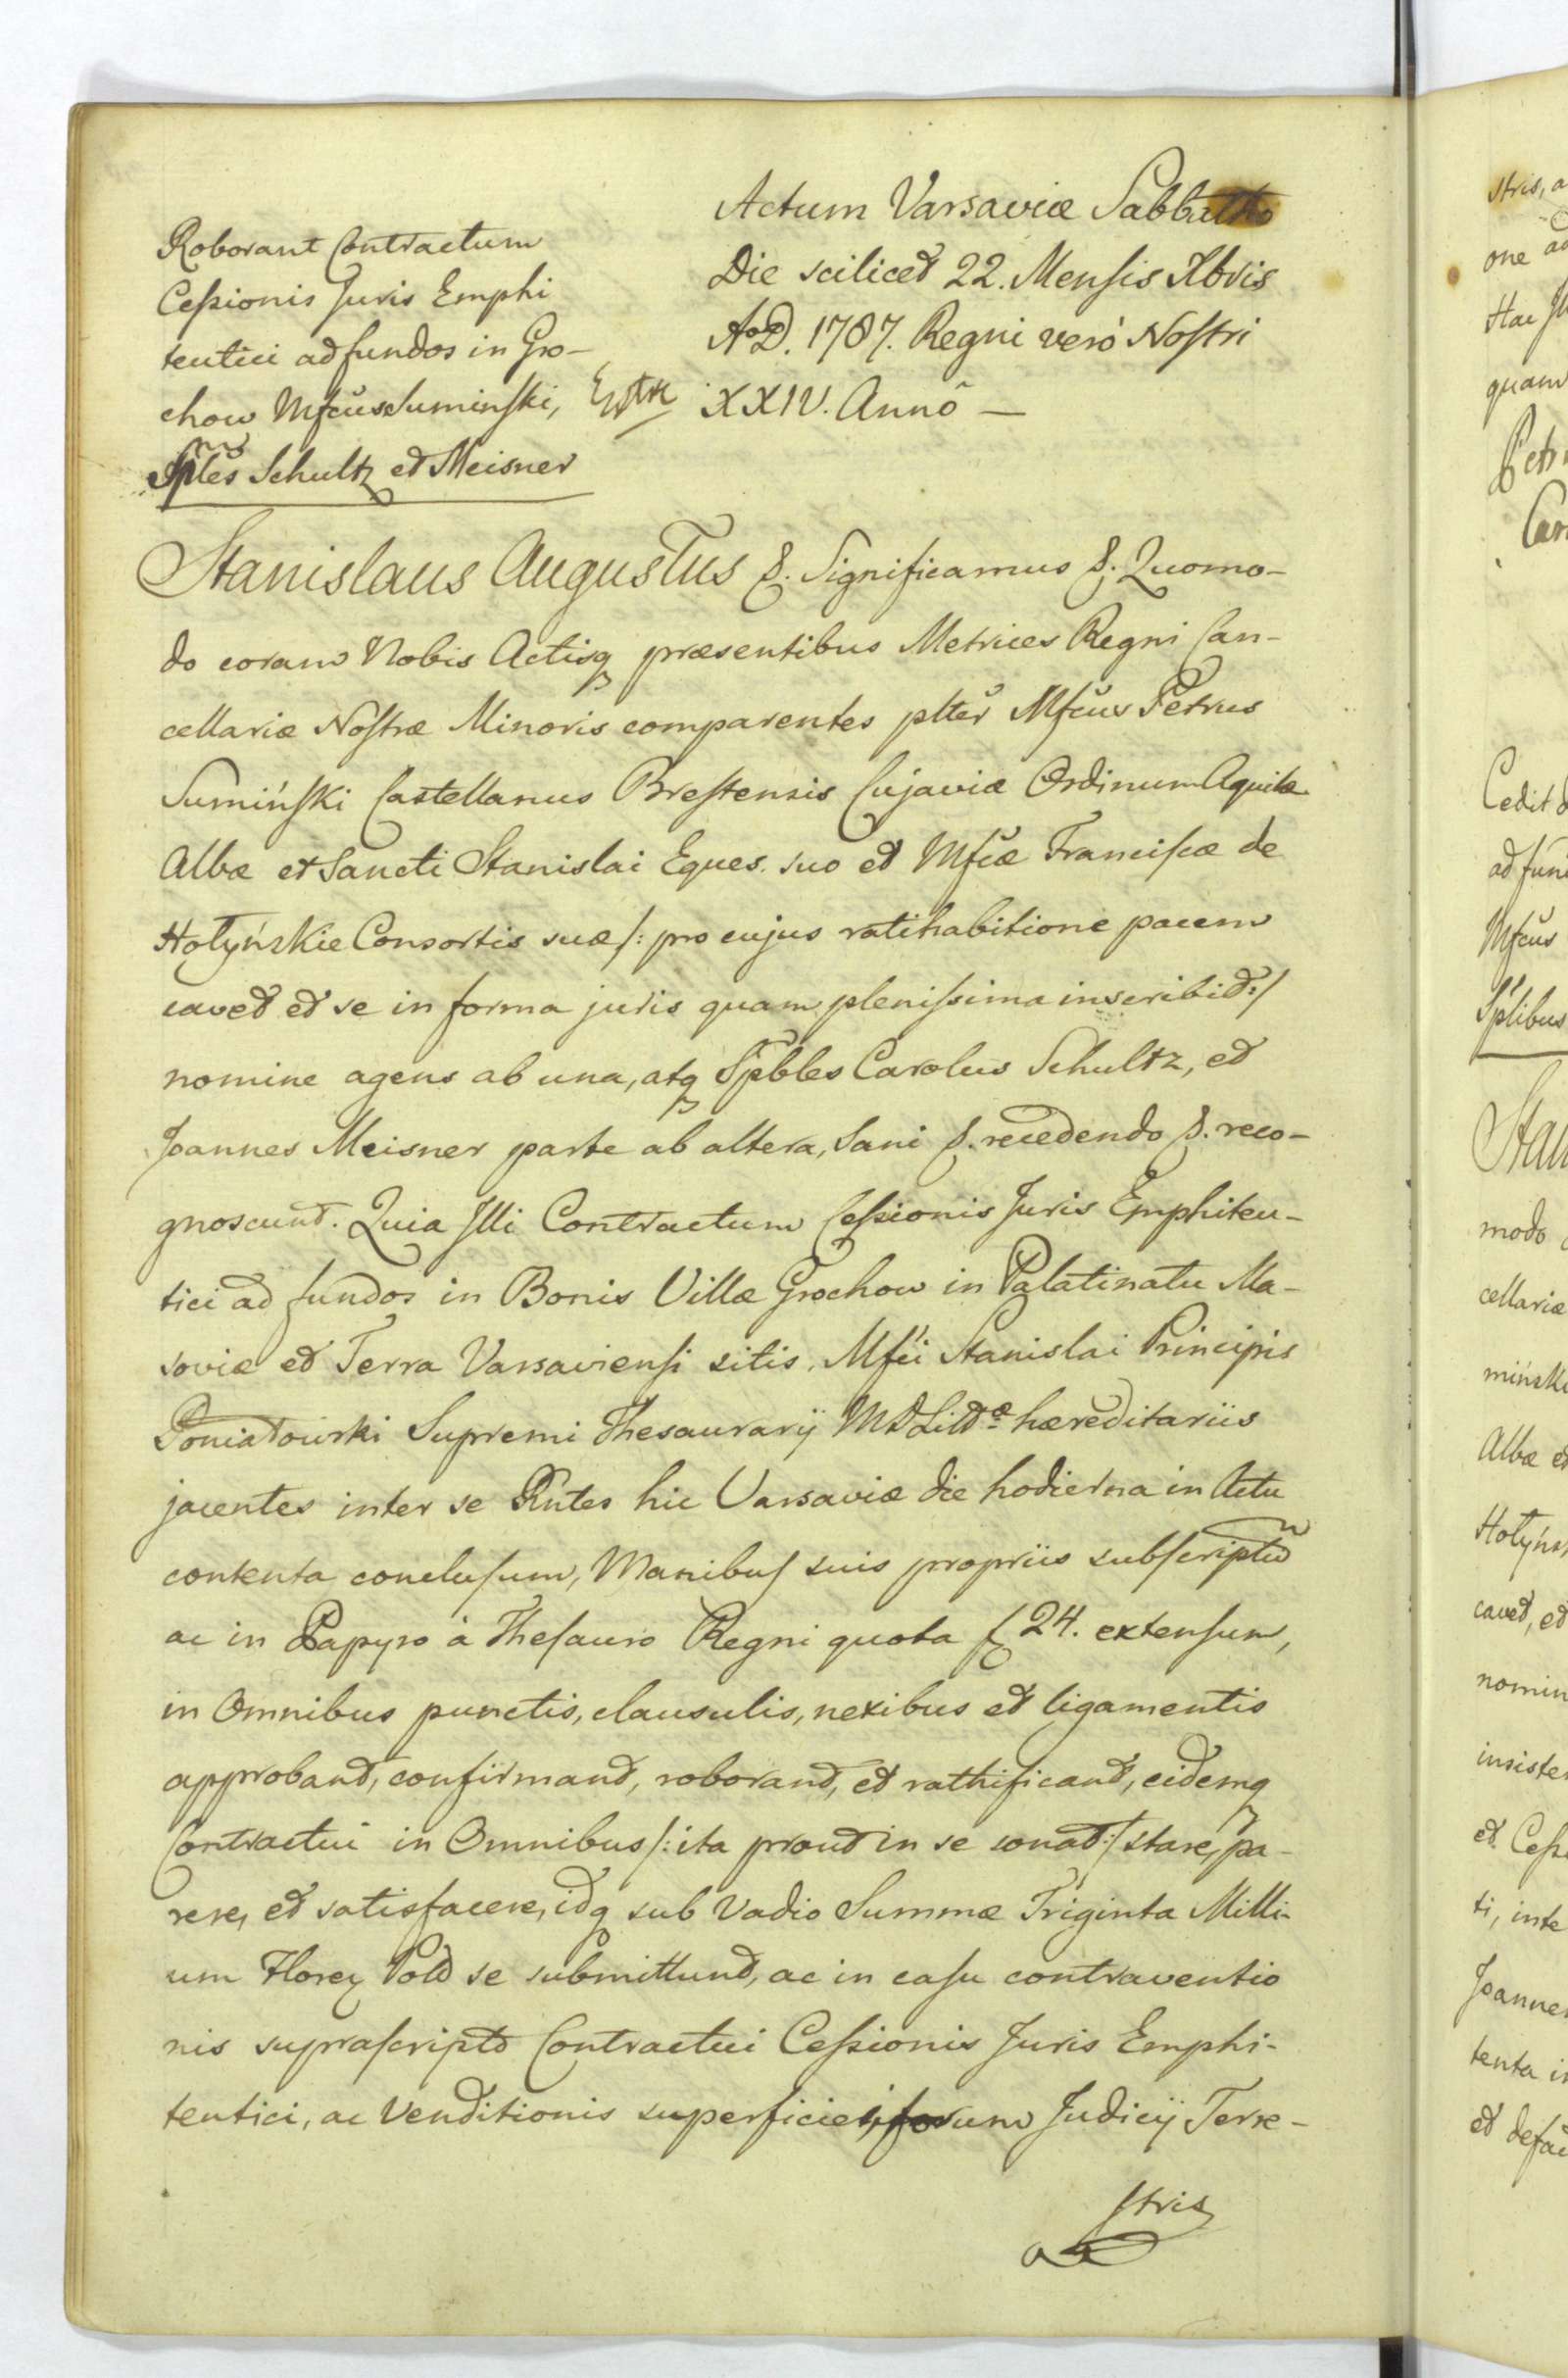 Actum Varsaviæ Sabbatho
Die scilicet 22. Mensis Xbris
AoD. 1787. Regni verò Nostri
XXIV. Annô —
Roborant Contractum
Cessionis Juris Emphi
teutici ad fundos in Gro-
chow Mfcus Suminski,
Sples Schultz et Meisner
Stanislaus Augustus &. Significamus &. Quomo-
do coram Nobis Actisq præsentibus Metrices Regni Can-
cellariæ Nostræ Minoris comparentes plter Mfcus Petrus
Sumiński Castellanus Brestensis Cujaviæ Ordinum Aquilæ
Albæ et Sancti Stanislai Eques. suo et Mfcæ Franciscæ de
Hołyńskie Consortis suæ /: pro cujus ratihabitione pacem
cavet et se in forma juris quam plenissima inscribit :/
nomine agens ab una, atq Spbles Carolus Schultz, et
Joannes Meisner parte ab altera, Sani &. recedendo &. reco-
gnoscunt. Quia Illi Contractum Cessionis Juris Emphiteu-
tici ad fundos in Bonis Villæ Grochow in Palatinatu Ma-
soviæ et Terra Varsaviensi sitis. Mfci Stanislai Principis
Poniatowski Supremi Thesaurarij MDLittæ hæreditariis
jacentes inter se Rntes hic Varsaviæ die hodierna in Actu
contenta conclusum, Manibus suis propriis subscriptu
ac in Papyro à Thesauro Regni quota f 24. extensum,
in Omnibus punctis, clausulis, nexibus et ligamentis
approbant, confirmant, roborant, et rathificant, eidemq
Contractui in Omnibus /: ita prout in se sonat :/ stare, pa-
rere, et satisfacere, idq sub Vadio Summæ Triginta Milli-
um Floren Pold se submittunt, ac in casu contraventio
nis suprascripto Contractui Cessionis Juris Emphi-
teutici, ac Venditionis superficiei, forum Judicij Terre-
stris
stris, a
one ad
quam
Petr
Car
Cedit
ad fun
Mfcus
Splibus
Stan
modo
cellariæ
mińsk
Albæ et
Hołyńs
cavet, et
nomin
insiste
et Cess
ti, inte
Joannes
tenta in
et defac